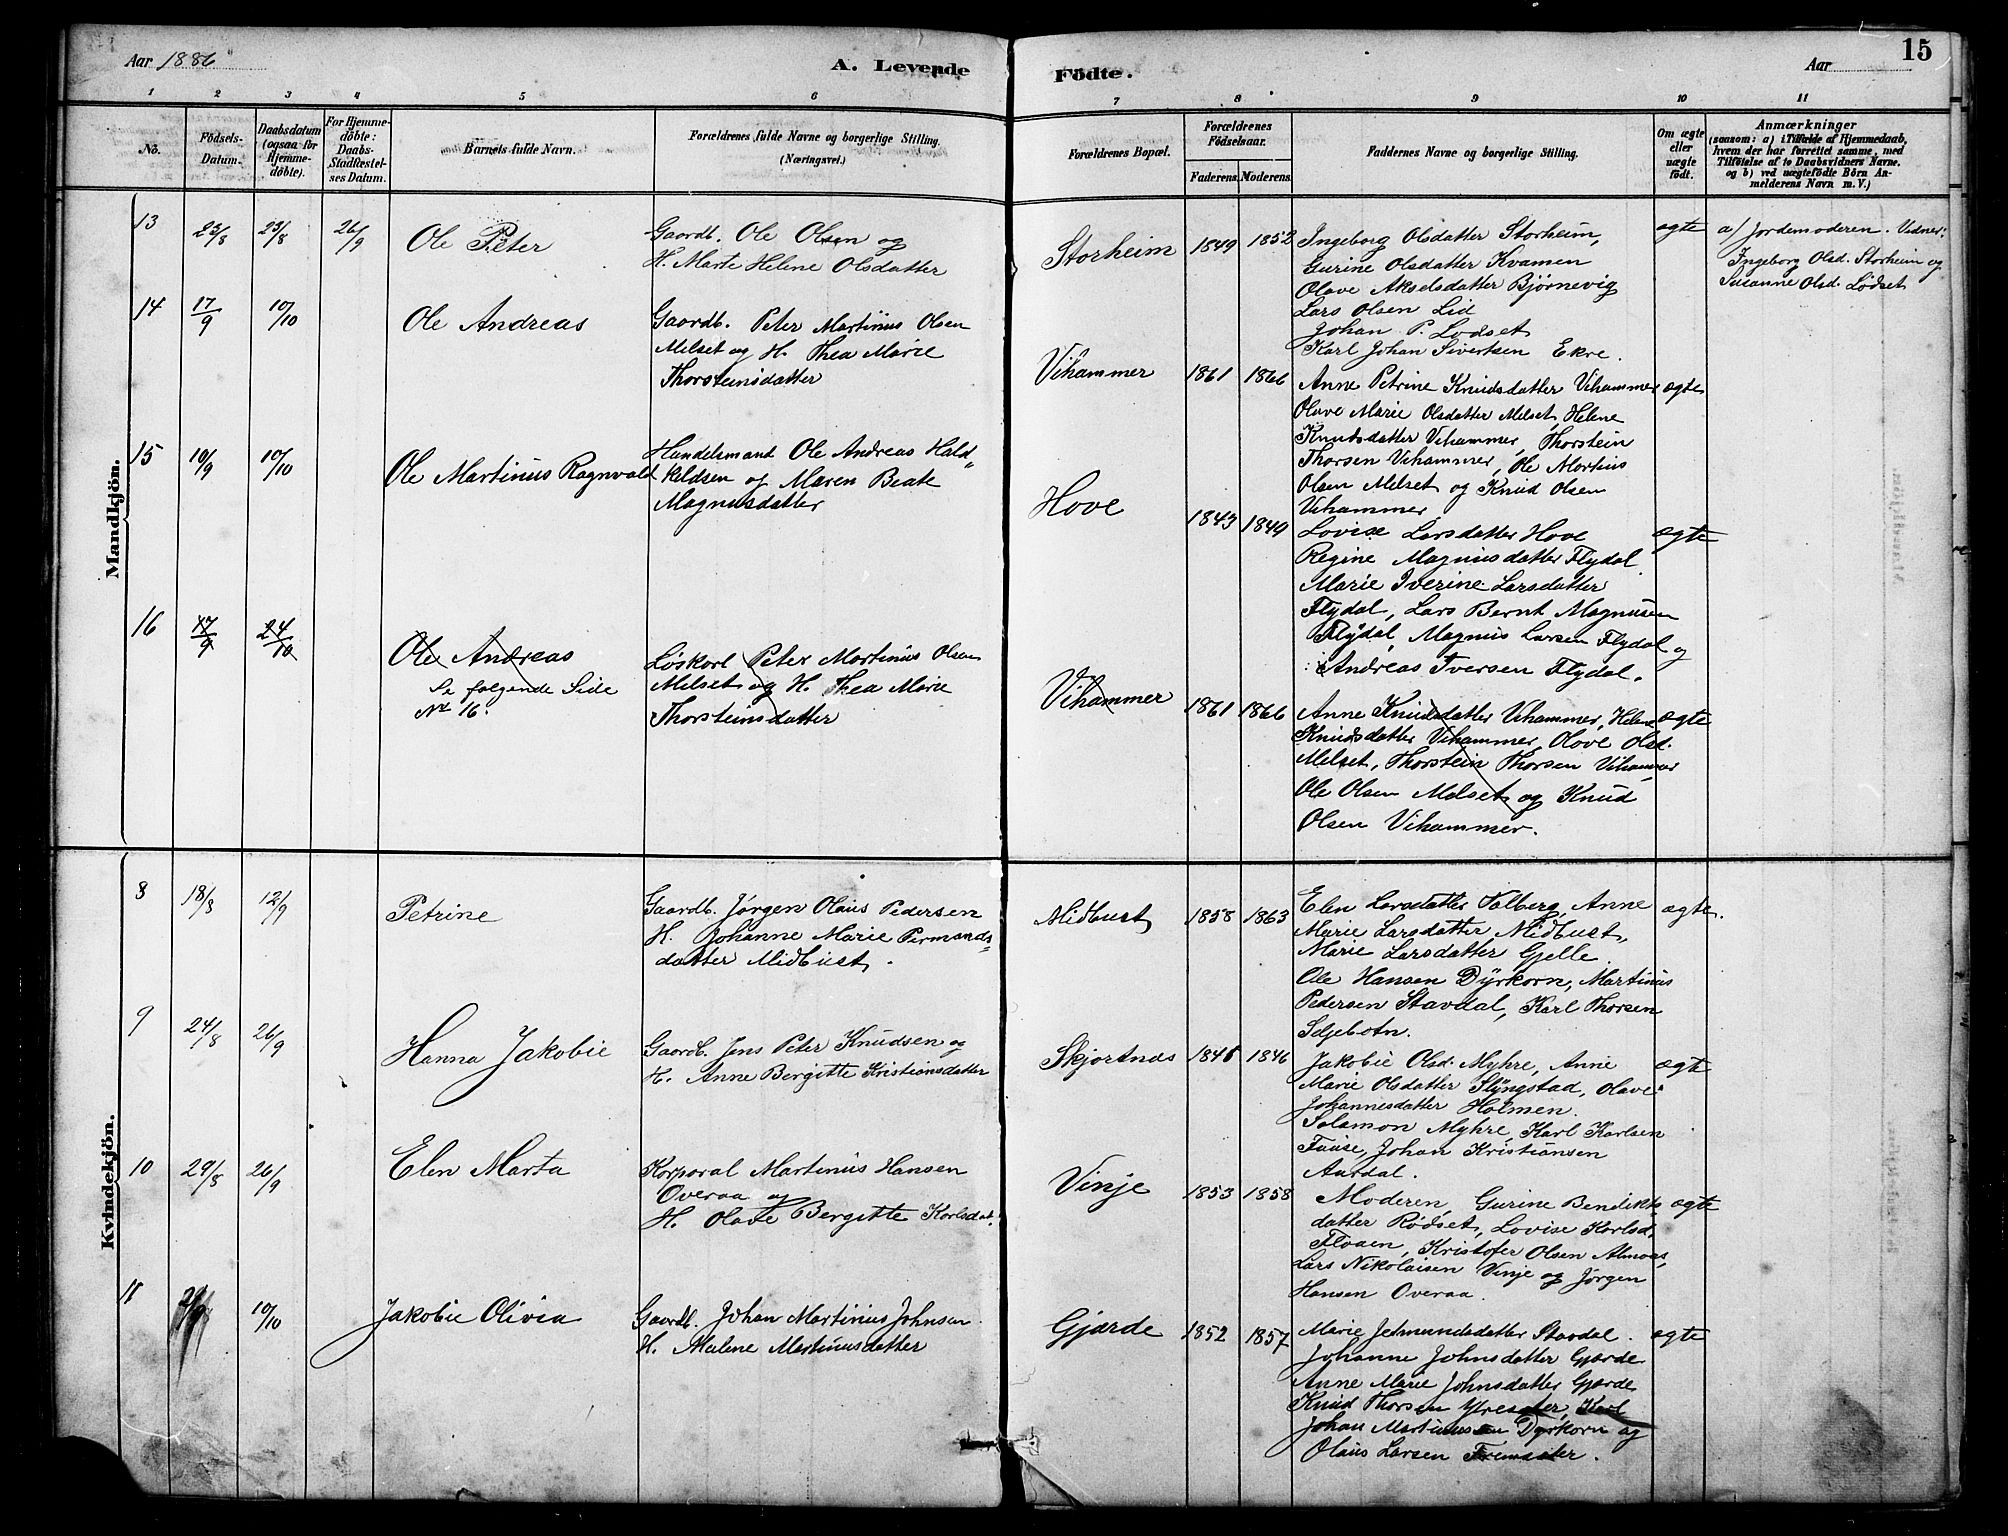 Aar 1886
A. Levende
Födte.
Aar
15
1 2 3 4 5 6 7 8 9 10 11
No.
Födsels-
Datum.
Daabsdatum
(ogsaa for
Hjemme-
döbte).
For Hjemme-
döbte:
Daabs-
Stadfæstel-
ses Datum.
Barnets fulde Navn.
Forældrenes fulde Navne og borgerlige Stilling.
(Næringsvei.)
Forældrenes Bopæl.
Forældrenes
Födselsaar.
Faderens. Moderens.
Faddernes Navne og borgerlige Stilling.
Om ægte
eller
uægte
födt.
Anmærkninger
(saasom: a) i Tilfælde af Hjemmedaab,
hvem der har forrettet samme, med
Tilföielse af to Daabsvidners Navne.
og b) ved uægtefödte Börn An-
melderens Navn m. V.)
Mandkjön.
13
23/8
23/8
26/9
Ole Peter
Gaardb. Ole Olsen og
H. Marte Helene Olsdatter
Storheim
1849
1852
Ingeborg Olsdatter Storheim,
Gurine Olsdatter Kvamen
Olave Akselsdatter Bjørnevig
Lars Olsen Lid
Johan P. Lødset
Karl Johan Sivertsen Ekre.
ægte
a/ Jordemoderen. Vidner:
Ingeborg Olsd. Storheim og
Susanne Olsd. Lødset
14
17/9
10/10
Ole Andreas
Gaardb. Peter Martinus Olsen
Melset og H. Thea Marie
Thorsteinsdatter
Vihammer
1861
1866
Anne Petrine Knudsdatter Vihammer
Olave Marie Olsdatter Melset, Helene
Knudsdatter Vihammer, Thorstein
Thorsen Vihammer, Ole Martius
Olsen Melset og Knud Olsen
Vihammer
ægte
15
10/9
10/10
Ole Martinus Ragnvald
Handelsmand Ole Andreas Hald-
keldsen og Maren Beate
Magnusdatter
Hove
1843
1849
Lovise Larsdatter Hove
Regine Magnusdatter Flydal
Marie Iverine Larsdatter
Flydal, Lars Bernt Magnusen
Flydal, Magnus Larsen Flydal og
Andreas Iversen Flydal.
ægte
16
17/9
24/10
Ole Andreas
Se følgende Side
No 16.
Løskarl Peter Martinus Olsen
Melset og H. Thea Marie
Thorsteinsdatter
Vihammer
1861
1866
Anne Knudsdatter Vihammer, Helene
Knudsdatter Vihammer, Olave Olsd.
Melset, Thorstein Thorsen Vihammer
Ole Olsen Melset og Knud
Olsen Vihammer.
ægte
Kvindekjön.
8
18/8
12/9
Petrine
Gaardb. Jørgen Olaus Pedersen
H. Johanne Marie Permands-
datter Midbust.
Midbust
1858
1863
Elen Larsdatter Valberg, Anne
Marie Larsdatter Midbust,
Marie Larsdatter Gjelle
Ole Hansen Dyrkorn, Martinus
Pedersen Stavdal, Karl Thorsen
Seljebotn.
ægte.
9
24/8
26/9
Hanna Jakobie
Gaardb. Jens Peter Knudsen og
H. Anne Bergitte Kristiansdatter
Skjortnæs
1846
Jakobie Olsd. Myhre, Anne
Marie Olsdatter Slyngstad, Olave
Johannesdatter Holmen.
Salamon Myhre, Karl Karlsen
Fause, Johan Kristiansen
Aurdal.
ægte
10
29/8
26/9
Elen Marta
Korporal Martinus Hansen
Overaa og
H. Olave Bergitte Karlsdat.
Vinje
1853
1858
Moderen, Gurine Bendikts
datter Rødset, Lovise Karlsd.
Floaen, Kristofer Olsen Almaas,
Lars Nikolaisen Vinje og Jørgen
Hansen Overaa.
ægte
11
10/10
Jakobie Olivia
Gaardb. Johan Martinius Johnsen
H. Malene Martinusdatter
Gjærde
1852
1857
Marie Jetmundsdatter Stavdal.
Johanne Johnsdatter Gjærde
Anne Marie Johnsdatter Gjærde
Knud Thorsen Yresæter, Karl
Johan Martinusen Dyrkorn og
Olaus Larsen Fremsæter.
ægte